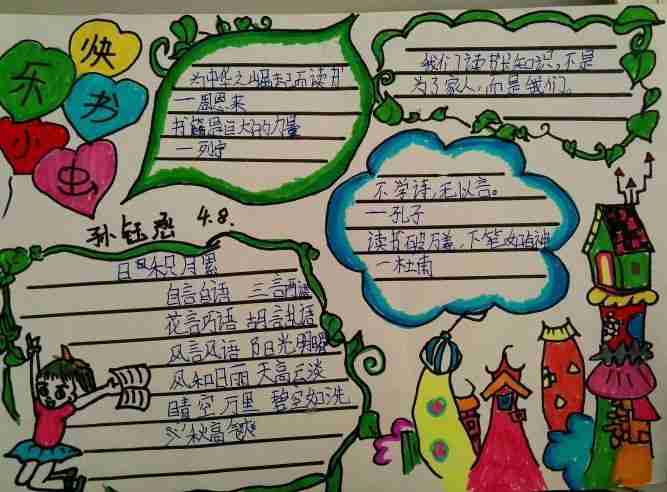 快
乐 书
小 虫
为中华之崛起而读书
—周恩来
书籍是巨大的力量
—列宁
我们读书长知识,不是
为了家人,而是我们。
不学诗,无以言。
—孔子
读书破万卷,下笔如有神
—杜甫
孙钰 4.8.
日积月累
自言自语 三言两语
花言巧语 胡言乱语
风言风语 阳光明媚
风和日丽 天高云淡
晴空万里 碧空如洗
秋高气爽